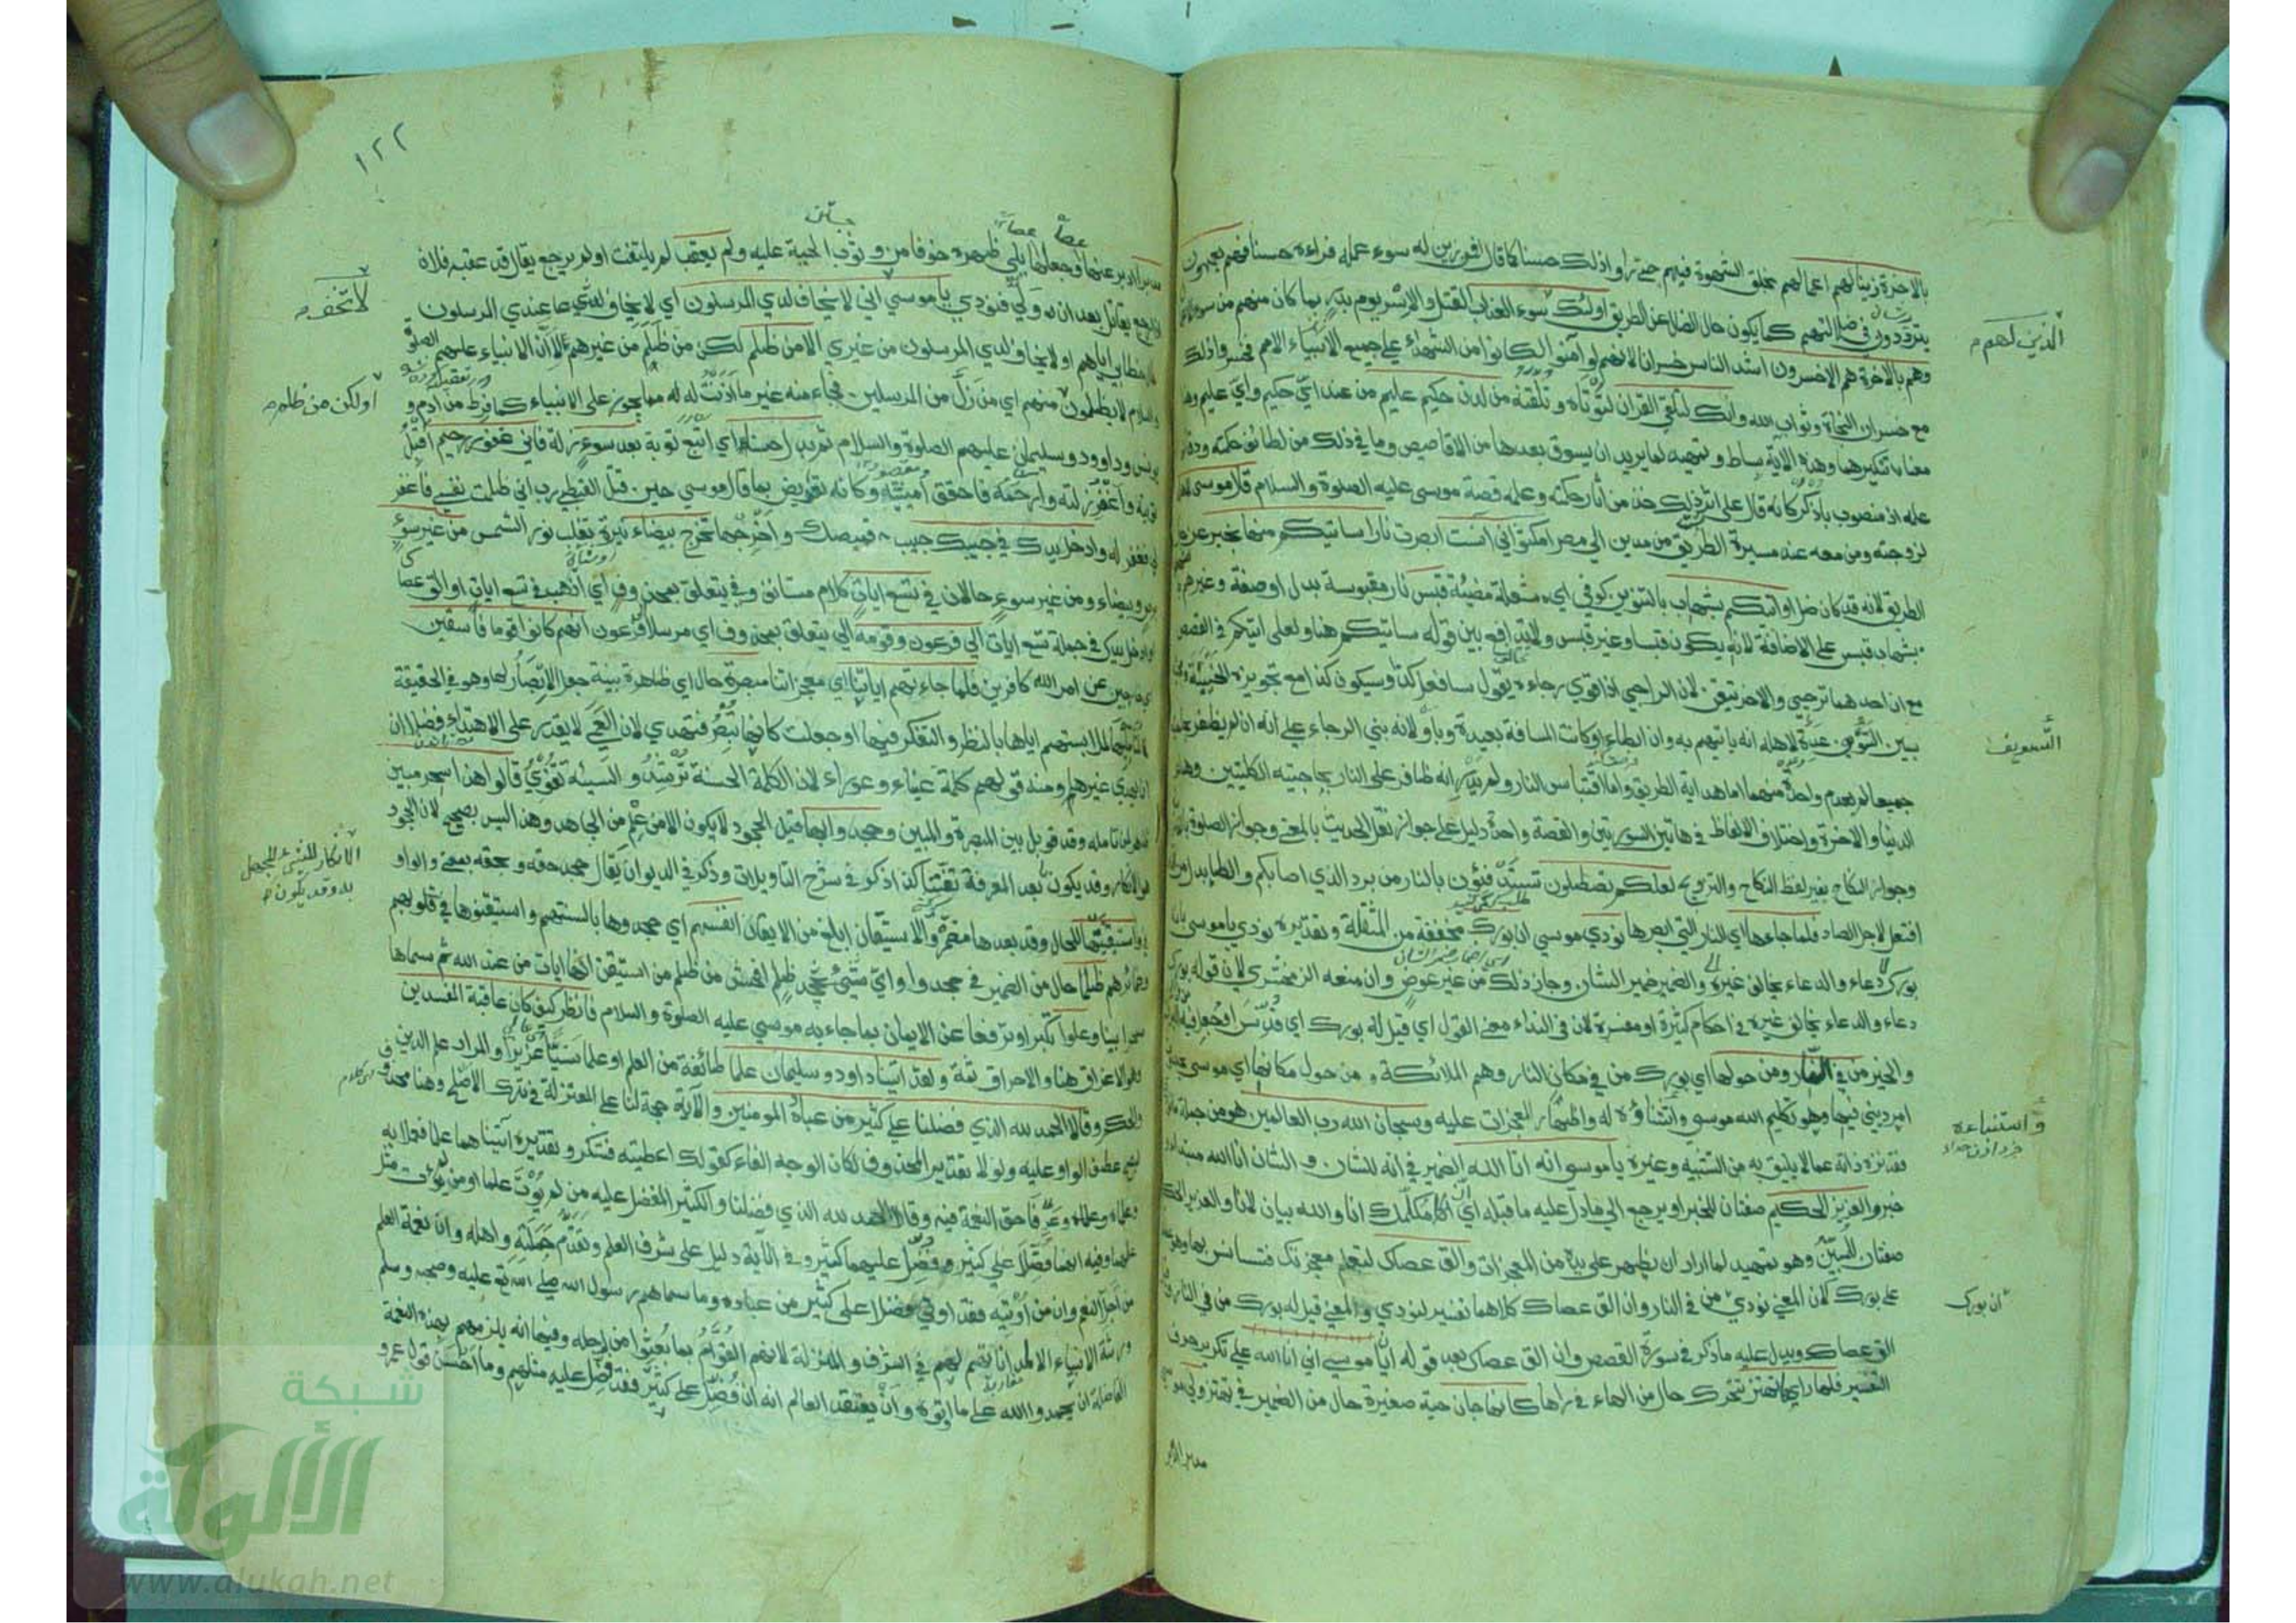 بالاخرة زينا لهم اعمالهم بخلق الشهوة فيهم حتى راوا ذلك حسنا كما قال افمن زين له سوء عمله فراءه حسنا فهم يعمهون
يترددون في ضلالتهم كما يكون حال الضال عن الطريق اولئك سوء العذاب القتل والاسر يوم بدر بما كان منهم من سوء
وهم بالاخرة هم الاخسرون اشد الناس خسرانا لانهم لو آمنوا لكانوا من الشهداء على جميع الانبياء الامم فخسروا ذلك
مع خسران النجاة وثواب الله وانك لتلقى القران لتؤتاه وتلقنه من لدن حكيم عليم من عند اي حكيم واي عليم وهذا
معنا تنكيرهما وهذه الآية بساط وتمهيد لما يريد ان يسوق بعدها من الاقاصيص وما في ذلك من لطائف حكمته ودقائق
علمه اذ منصوب باذكر كانه قال على اثر ذلك خذ من آثار حكمته وعلمه قصة موسى عليه الصلوة والسلام قال موسى لاهله
لزوجته ومن معه عند مسيرة الطريق من مدين الى مصر امكثوا اني آنست ابصرت نارا ساتيكم منها بخبر عن حال
الطريق لانه قد كان ضل او اتيكم بشهاب بالتنوين كوفي اي شعلة مضيئة قبس نار مقبوسة بدل او صفة وغيرهم
بشهاب قبس على الاضافة لانه يكون قبسا وغير قبس ولا تدافع بين قوله ساتيكم هنا ولعلي اتيكم في القصص
مع ان احدهما ترجي والاخر تيقن لان الراجي اذا قوي رجاءه يقول سافعل كذا وسيكون كذا مع تجويزه الخيبة
بسين التسويف عدة لاهله انه ياتيهم به وان ابطاء او كانت المسافة بعيدة وباو لانه بني الرجاء على انه ان لم يظفر بحاجتيه
جميعا لم يعدم واحدة منهما اما هداية الطريق واما اقتباس النار ولم يدر انه ظافر على النار بحاجتيه الكليتين وهما
الدنيا والاخرة واختلاف الالفاظ في هاتين السورتين والقصة واحدة دليل على جواز نقل الحديث بالمعنى وجواز الصلوة
وجواز النكاح بغير لفظ النكاح والتزويج لعلكم تصطلون تستدفئون بالنار من برد الذي اصابكم والطا بدل من تاء
افتعل لاجل الصاد فلما جاءها اي النار التي ابصرها نودي موسى ان بورك مخففة من المثقلة وتقديره نودي يا موسى بانه
بورك دعاء والدعاء يخالف غيره والضمير ضمير الشان وجاز ذلك من غير عوض وان منعه الزمخشري لان قوله بورك
دعاء والدعاء يخالف غيره في احكام كثيرة او مفسرة لان في النداء معنى القول اي قيل له بورك اي قدس او جعل فيه البركة
والخير من في النار ومن حولها اي بورك من في مكان النار وهم الملائكة ومن حول مكانها اي موسى
امر ديني فيها وهو تكليم الله موسى واستنباؤه له واظهار المعجزات عليه وسبحان الله رب العالمين هو من جملة
فقد نزه ذاته عما لا يليق به من التشبيه وغيره يا موسى انه انا الله الضمير في انه للشان والشان انا الله مبتدا
خبر والعزيز الحكيم صفتان للخبر او يرجع الى ما دل عليه ما قبله اي ان مكلمك انا والله بيان لانا والعزيز الحكيم
صفتان للمبين وهو تمهيد لما اراد ان يظهر على يده من المعجزات والق عصاك لتعلم معجزتك فتانس بها وهو
على بورك لان المعنى نودي من في النار وان الق عصاك كلاهما تفسير لنودي والمعنى قيل له بورك من في النار
الق عصاك ويدل عليه ما ذكر في سورة القصص وان الق عصاك بعد قوله ان يا موسى اني انا الله على تكرير حرف
التفسير فلما راها تهتز تتحرك حال من الهاء في راها كانها جان حية صغيرة حال من الضمير في تهتز ولى موسى
مدبرا ادبر
الذين لهم
التسويف
واستنباءه
ان بورك
١٢٢
مدبرا ادبر عنها وجعلها يلي ظهره خوفا من وثوب الحية عليه ولم يعقب لم يلتفت او لم يرجع يقال قد عقب فلان
اذا رجع يقاتل بعد ان ولى فنودي يا موسى اني لا يخاف لدي المرسلون اي لا يخاف لدي عندي المرسلون
خطابي اياهم او لا يخاف لدي المرسلون من غيري الا من ظلم لكن من ظلم من غيرهم لان الانبياء عليهم الصلوة
والسلام لا يظلمون منهم اي من زل من المرسلين فجاء منه غير ما اذنت له مما يجوز على الانبياء كما فرط من آدم و
يونس وداوود وسليمان عليهم الصلوة والسلام ثم بدل حسنا اي اتبع توبة بعد سوء زلة فاني غفور رحيم اقبل
توبته واغفر زلته وارحمه فاحقق امنيته وكانه تعريض بما قال موسى حين قتل القبطي رب اني ظلمت نفسي فاغفر
لي فغفر له وادخل يدك في جيبك جيب قميصك واخرجها تخرج بيضاء نيرة تغلب نور الشمس من غير سوء
برص وبيضاء ومن غير سوء حالان في تسع ايات كلام مستانف وفي يتعلق بمحذوف اي اذهب في تسع ايات او الق عصاك
وادخل يدك في جملة تسع ايات الى فرعون وقومه الى يتعلق بمحذوف اي مرسلا الى فرعون انهم كانوا قوما فاسقين
خارجين عن امر الله كافرين فلما جاءتهم اياتنا اي معجزاتنا مبصرة حال اي ظاهرة بينة جعل الابصار لها وهو في الحقيقة
لمتامليها لملابستهم اياها بالنظر والتفكر فيها او جعلت كانها تبصر فتهدي لان العمي لا يقدر على الاهتداء فضلا ان
تهدي غيرها ومنه قولهم كلمة عيناء وعوراء لان الكلمة الحسنة ترشد والسيئة تغوي قالوا هذا سحر مبين
ظاهر لمن تامله وقد قوبل بين المبصرة والمبين وجحدوا بها قيل الجحود لا يكون الا من علم من الجاحد وهذا ليس بصحيح لان الجحود
هو الانكار وقد يكون بعد المعرفة تعنتا كذا ذكر في شرح التاويلات وذكر في الديوان يقال جحد حقه وبحقه بمعنى والواو
في واستيقنتها للحال وقد بعدها مضمر والاستيقان ابلغ من الايقان انفسهم اي جحدوها بالسنتهم واستيقنوها في قلوبهم
وضمائرهم ظلما حال من الضمير في جحدوا واي ظلم افحش من ظلم من استيقن انها ايات من عند الله ثم سماها
سحرا بينا وعلوا تكبرا وترفعا عن الايمان بما جاء به موسى عليه الصلوة والسلام فانظر كيف كان عاقبة المفسدين
وهو الاغراق هنا والاحراق ثمة ولقد اتينا داود وسليمان علما طائفة من العلم او علما سنيا عزيزا والمراد علم الدين
والحكم وقالا الحمد لله الذي فضلنا على كثير من عباده المومنين والآية حجة لنا على المعتزلة في ترك الاصلح وهنا محذوف
ليصح عطف الواو عليه ولولا تقدير المحذوف لكان الوجه الفاء كقولك اعطيته فشكر وتقديره آتيناهما علما فعملا به
وعلماه وعرفا حق النعمة فيه وقالا الحمد لله الذي فضلنا والكثير المفضل عليه من لم يؤت علما او من لم يؤت مثل
علمهما وفيه انهما فضلا على كثير وفضل عليهما كثير وفي الآية دليل على شرف العلم وتقدم حملته واهله وان نعمة العلم
من اجل النعم وان من اوتيه فقد اوتي فضلا على كثير من عباده وما سماهم رسول الله صلى الله عليه وصحبه وسلم
ورثة الانبياء الا لمداناتهم لهم في الشرف والمنزلة لانهم القوام بما بعثوا من اجله وفيها انه يلزمهم بهذه النعمة
الفاضلة ان يحمدوا الله على ما اوتوه وان يعتقد العالم انه ان فضل على كثير فقد فضل عليه مثلهم وما احسن قول عمر و
لا تخف
او لكن من ظلم
الانكار للشيء للجهل
به وقد يكون
شبكة
الألوكة
www.alukah.net